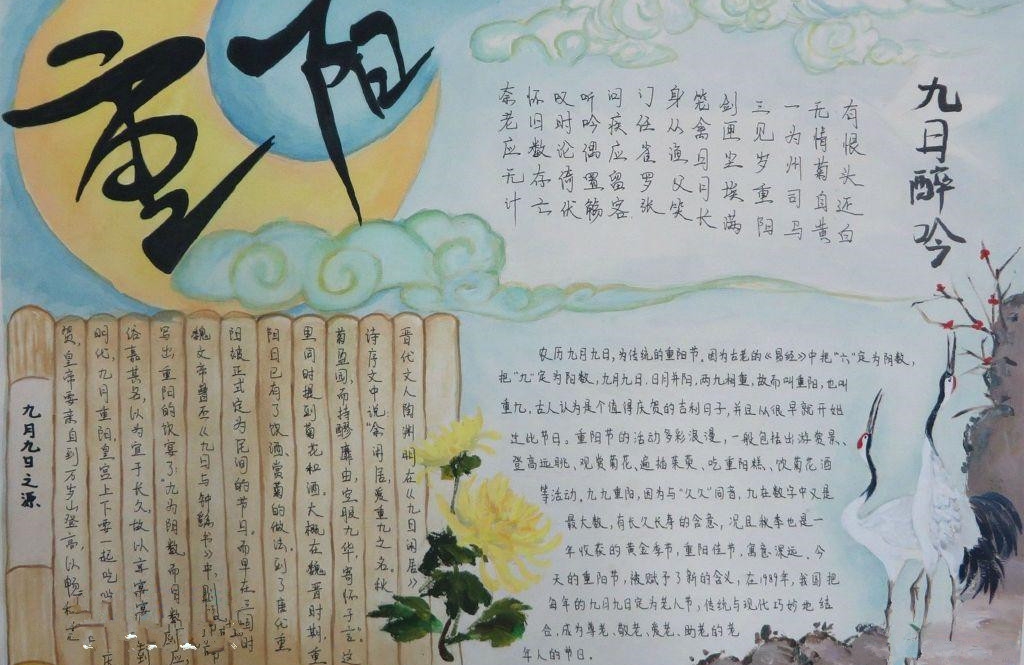 重阳
九日醉吟
有恨头还白
无情菊自黄
一为州司马
三见岁重阳
剑匣尘埃满
笼禽日月长
身从渔父笑
门任雀罗张
问疾应留客
听吟偶置觞
叹时论倚伏
怀旧数存亡
奈老应无计
九月九日之源
晋代文人陶渊明在《九日闲居》
诗序文中说"余闲居,爱重九之名。秋
菊盈园,而持醪靡由,空服九华,寄怀于言。"这
里同时提到菊花和酒。大概在魏晋时期,重
阳日已有了饮酒、赏菊的做法。到了唐代重
阳被正式定为民间的节日。而早在三国时
魏文帝曹丕《九日与钟繇书》中,则
写出重阳的饮宴了:"九为阳数,而日数则应,
俗嘉其名,以为宜于长久,故以享宴 到
明代,九月重阳,皇宫上下要一起吃 庆
贺,皇帝要亲自到万岁山登高,以畅
农历九月九日,为传统的重阳节。因为古老的《易经》中把"六"定为阴数,
把"九"定为阳数,九月九日,日月并阳,两九相重,故而叫重阳,也叫
重九,古人认为是个值得庆贺的吉利日子,并且从很早就开始
过此节日。重阳节的活动多彩浪漫,一般包括出游赏景、
登高远眺、观赏菊花、遍插茱萸、吃重阳糕、饮菊花酒
等活动。九九重阳,因为与"久久"同音,九在数字中又是
最大数,有长久长寿的含意,况且秋季也是一
年收获的黄金季节,重阳佳节,寓意深远。今
天的重阳节,被赋予了新的含义,在1989年,我国把
每年的九月九日定为老人节,传统与现代巧妙地结
合,成为尊老、敬老、爱老、助老的老
年人的节日。